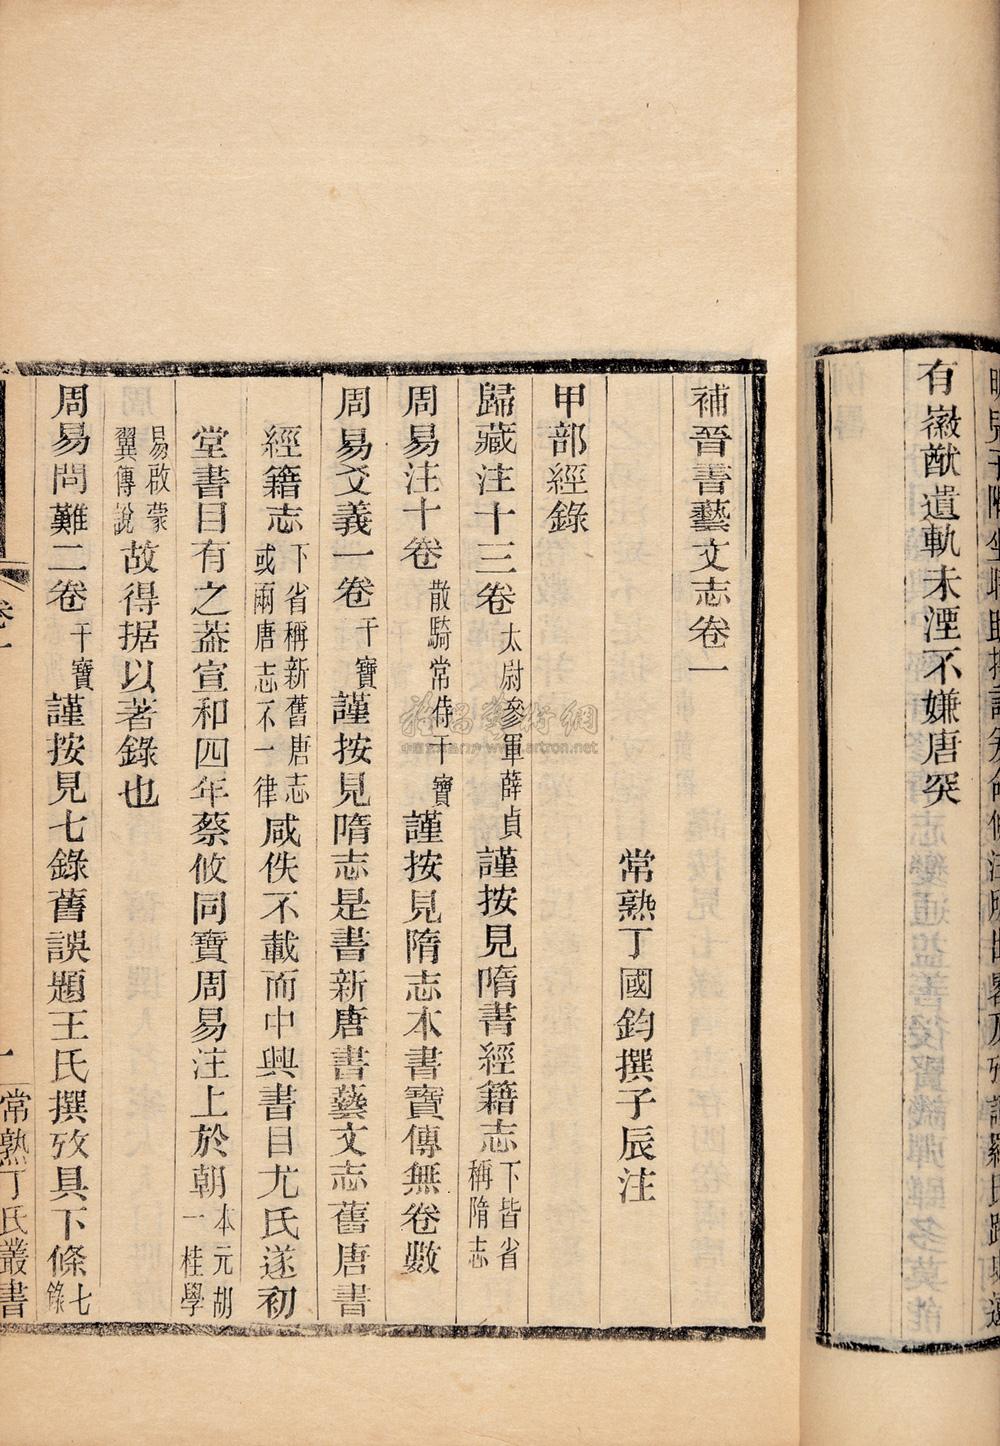 有徽猷遺軌未湮不嫌唐突
補晉書藝文志卷一
常熟丁國鈞撰子辰注
甲部經錄
歸藏注十三卷太尉參軍薛貞謹按見隋書經籍志下皆省稱隋志
周易注十卷散騎常侍干寶謹按見隋志本書寶傳無卷數
周易爻義一卷干寶謹按見隋志是書新唐書藝文志舊唐書
經籍志下省稱新舊唐志或兩唐志不一律咸佚不載而中興書目尤氏遂初
堂書目有之蓋宣和四年蔡攸同寶周易注上於朝本元胡一桂學
易啟蒙翼傳說故得据以著錄也
周易問難二卷干寶謹按見七錄舊誤題王氏撰攷具下條七錄
卷一
一
常熟丁氏叢書
www.artron.net